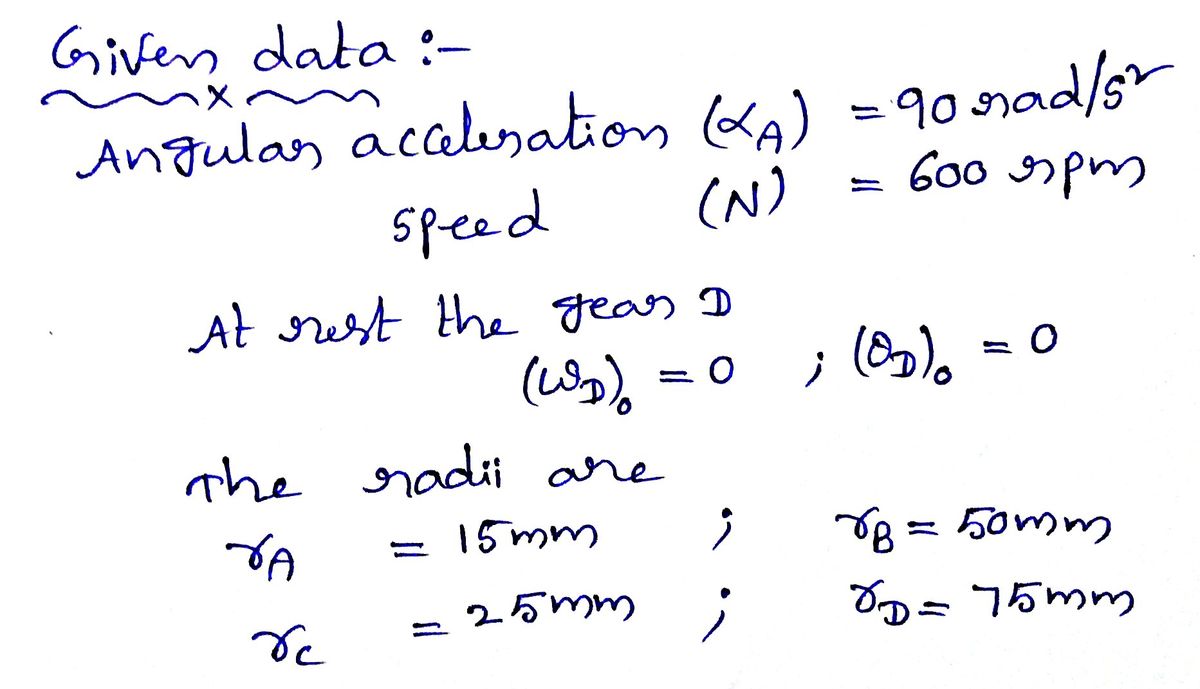 Given data :-
Angular acceleration (αA) = 90 rad/s²
speed (N) = 600 rpm
At rest the gear D
(ωD)₀ = 0 ; (θD)₀ = 0
The radii are
rA = 15mm ; rB = 50mm
rC = 25mm ; rD = 75mm